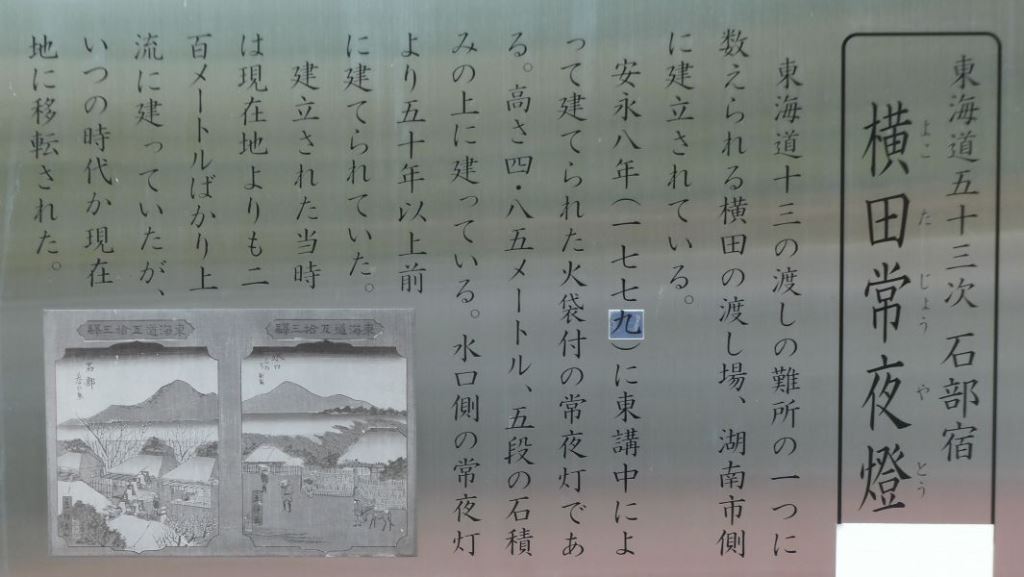 東海道五十三次 石部宿
横田常夜燈
よこ た じょう や とう
東海道十三の渡しの難所の一つに
数えられる横田の渡し場、湖南市側
に建立されている。
安永八年（一七七九）に東講中によ
って建てられた火袋付の常夜灯であ
る。高さ四・八五メートル、五段の石積
みの上に建っている。水口側の常夜灯
より五十年以上前
に建てられていた。
建立された当時
は現在地よりも二
百メートルばかり上
流に建っていたが、
いつの時代か現在
地に移転された。
東海道五拾三驛
水口
東海道五拾三驛
石部